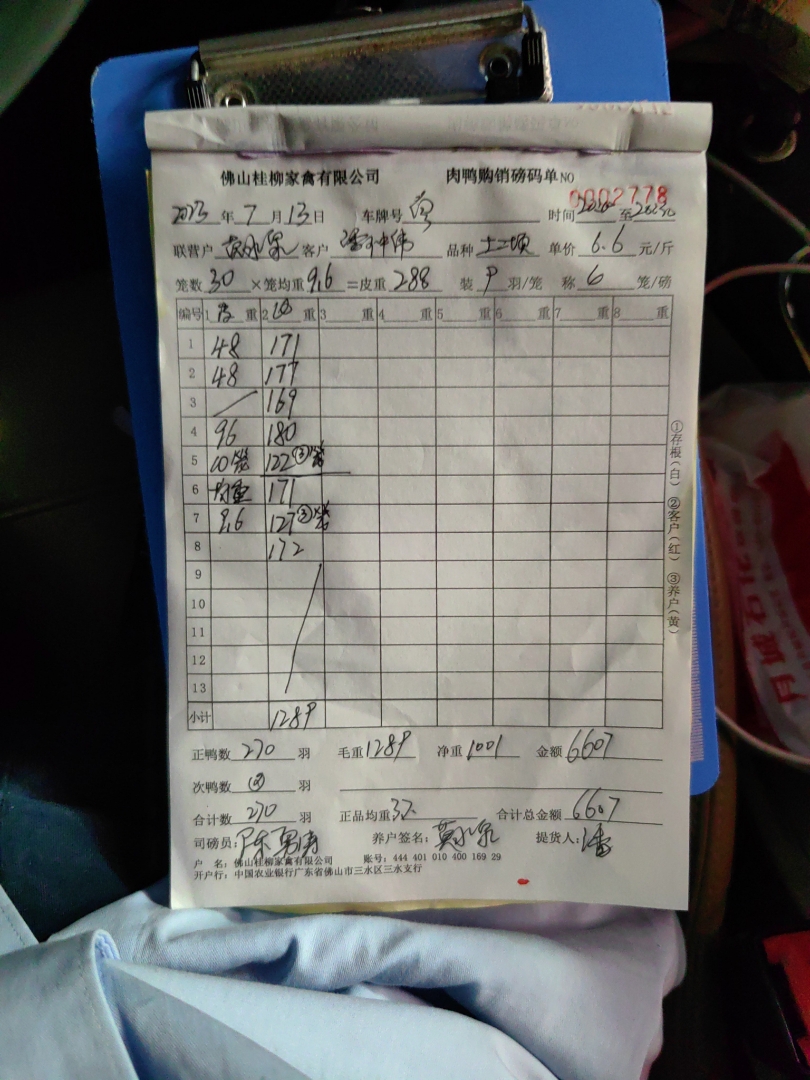 佛山桂柳家禽有限公司 肉鸭购销磅码单 NO 0002778
2023 年 7 月 13 日 车牌号 时间 至
联营户 莫水泉 客户 潘仲伟 品种 单价 6.6 元/斤
笼数 30 ×笼均重 9.6 =皮重 288 装 9 羽/笼 称 6 笼/磅
编号 1 皮 重 2 毛 重 3 重 4 重 5 重 6 重 7 重 8 重
1 48 171
2 48 177
3 169
4 96 180
5 10笼 122 ③笼
6 均重 171
7 9.6 127 ③笼
8 172
9
10
11
12
13
小计 1289
正鸭数 270 羽 毛重 1289 净重 1001 金额 6607
次鸭数 羽
合计数 270 羽 正品均重 合计总金额 6607
司磅员: 养户签名: 莫水泉 提货人: 潘
户 名: 佛山桂柳家禽有限公司 账号: 444 401 010 400 169 29
开户行: 中国农业银行广东省佛山市三水区三水支行
①存根(白) ②客户(红) ③养户(黄)